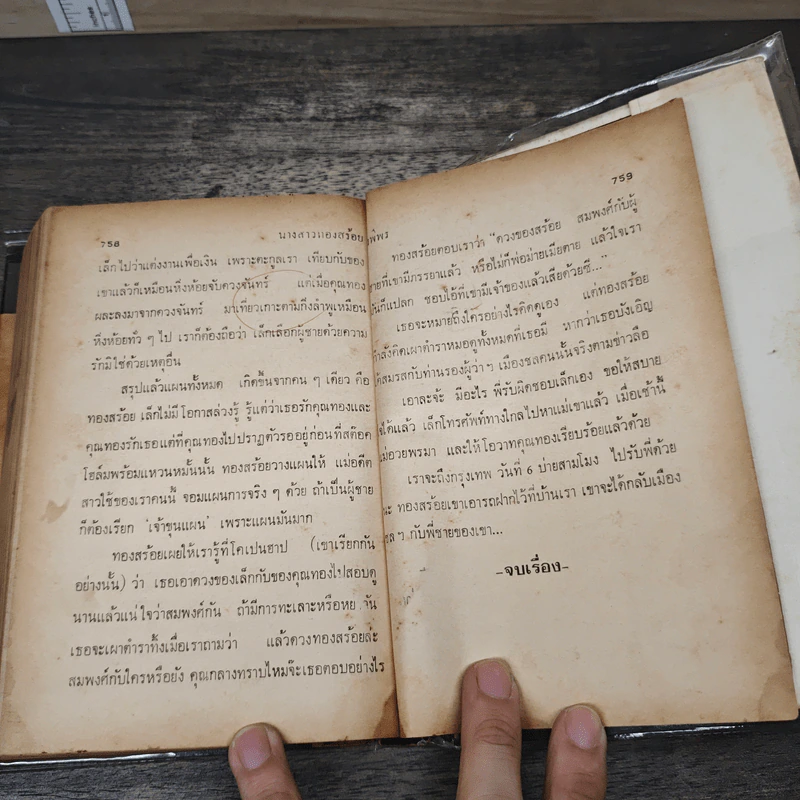 758
นางสาวทองสร้อย
เล็กไปว่าแต่งงานเพื่อเงิน เพราะตะกูลเรา เทียบกับของ
เขาแล้วก็เหมือนหิ่งห้อยจับดวงจันทร์ แต่เมื่อคุณทอง
ผละลงมาจากดวงจันทร์ มาเที่ยวเกาะตามกิ่งลำพูเหมือน
หิ่งห้อยทั่ว ๆ ไป เราก็ต้องถือว่า เล็กเลือกผู้ชายด้วยความ
รักมิใช่ด้วยเหตุอื่น
สรุปแล้วแผนทั้งหมด เกิดขึ้นจากคน ๆ เดียว คือ
ทองสร้อย เล็กไม่มีโอกาสล่วงรู้ รู้แต่ว่าเธอรักคุณทองและ
คุณทองรักเธอแต่ที่คุณทองไปปราฏตัวรออยู่ก่อนที่สต๊อค
โฮล์มพร้อมแหวนหมั้นนั้น ทองสร้อยวางแผนให้ แม่อดีต
สาวใช้ของเราคนนี้ จอมแผนการจริง ๆ ด้วย ถ้าเป็นผู้ชาย
ก็ต้องเรียก 'เจ้าขุนแผน' เพราะแผนมันมาก
ทองสร้อยเผยให้เรารู้ที่โคเปนฮาป (เขาเรียกกัน
อย่างนั้น) ว่า เธอเอาดวงของเล็กกับของคุณทองไปสอบดู
นานแล้วแน่ใจว่าสมพงศ์กัน ถ้ามีการทะเลาะหรือหย
เธอจะเผาตำราทิ้งเมื่อเราถามว่า แล้วดวงทองสร้อยล่ะ
สมพงศ์กับใครหรือยัง คุณกลางทราบไหมจ๊ะเธอตอบอย่างไร
759
ทองสร้อยตอบเราว่า "ดวงของสร้อย สมพงศ์กับผู้
ชายที่เขามีภรรยาแล้ว หรือไม่ก็พ่อม่ายเมียตาย แล้วใจเรา
มันก็แปลก ชอบไอ้ที่เขามีเจ้าของแล้วเสียด้วยซี..."
เธอจะหมายถึงใครอย่างไรคิดดูเอง แต่ทองสร้อย
กำลังคิดเผาตำราหมอดูทั้งหมดที่เธอมี หากว่าเธอบังเอิญ
ได้สมรสกับท่านรองผู้ว่าฯ เมืองชลคนนั้นจริงตามข่าวลือ
เอาละจ้ะ มีอะไร พี่รับผิดชอบเล็กเอง ขอให้สบาย
ใจได้แล้ว เล็กโทรศัพท์ทางไกลไปหาแม่เขาแล้ว เมื่อเช้านี้
แม่อวยพรมา และให้โอวาทคุณทองเรียบร้อยแล้วด้วย
เราจะถึงกรุงเทพ วันที่ 6 บ่ายสามโมง ไปรับพี่ด้วย
นะ ทองสร้อยเขาเอารถฝากไว้ที่บ้านเรา เขาจะได้กลับเมือง
ชลฯ กับพี่ชายของเขา...
-จบเรื่อง-